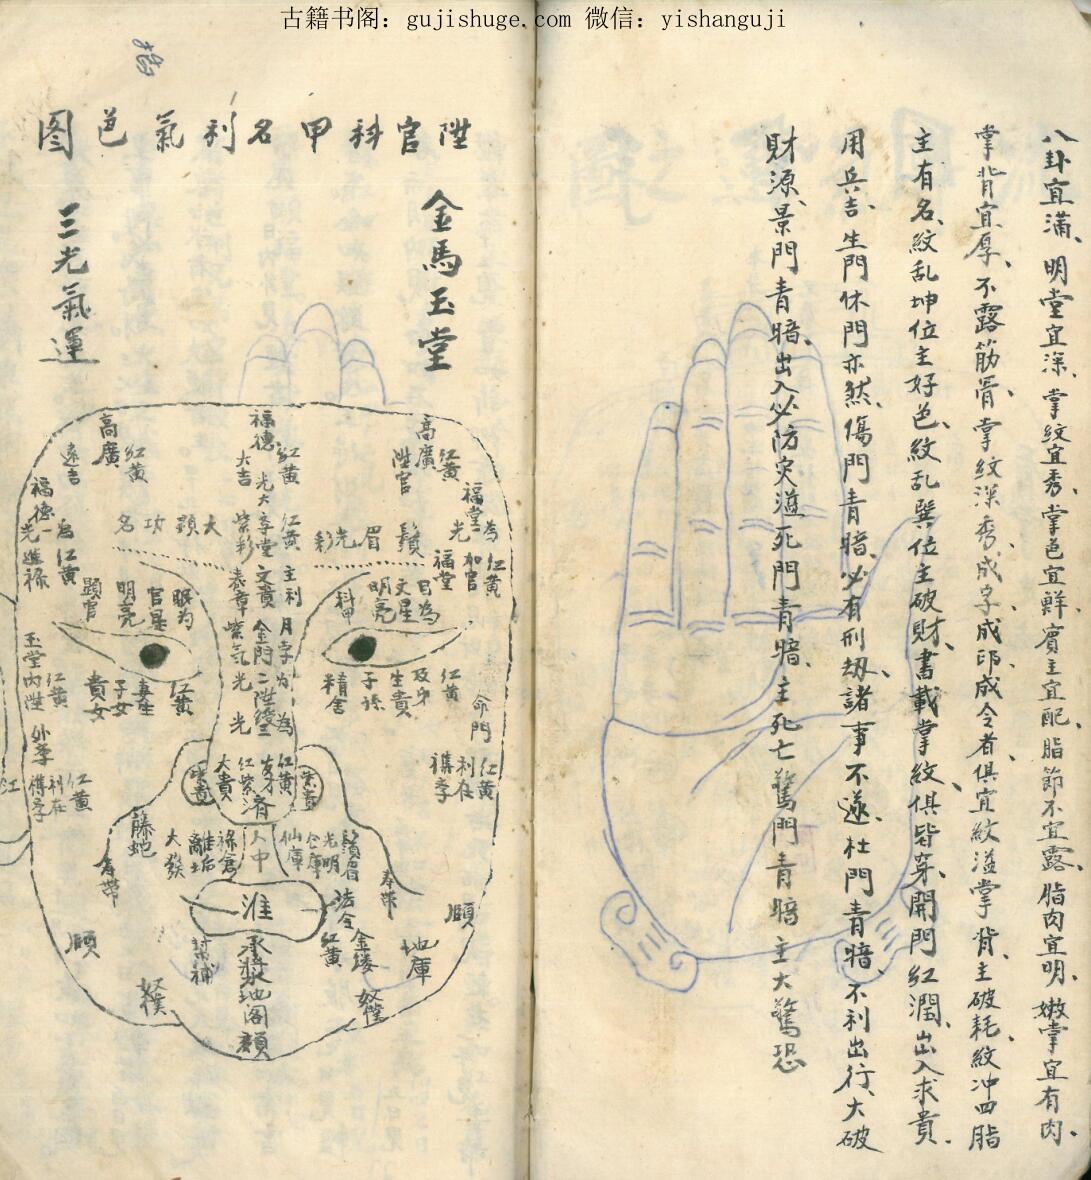 古籍书阁：gujishuge.com 微信：yishanguji
八卦宜滿、明堂宜深、掌紋宜秀、掌色宜鮮、賓主宜配、脂節不宜露、脂肉宜明、嫩掌宜有肉、
掌背宜厚、不露筋骨、掌紋深秀、成字、成印、成令者、俱宜紋溢掌背、主破耗紋冲四脂
主有名、紋乱坤位主好色、紋乱巽位主破財、書載掌紋俱皆穿、開門紅潤、出入求貴、
用兵吉、生門休門亦然、傷門青暗、必有刑劫、諸事不遂、杜門青暗、不利出行、大破
財源、景門青暗、出入必防災溢死門青暗、主死亡驚門青暗主大驚恐
陞官科甲名利氣色图
金馬玉堂
三光氣運
高廣
紅黃
陞官
福堂
光為
紅黃
加官
福堂
福德
大吉
紅黃
光大
高廣
紅黃
遠吉
福德
光為
紅黃
進祿
鬚眉光彩
大顕功名
紫彩
李堂
紅黃
文貴
主利
表章
紫气
金門
月孛
為
光
光
二陞
為
目為
文星
明亮
科甲
眼为
官星
明亮
顕官
及第
生貴
子孫
精舍
紅黃
命門
紅黃
妻生
子女
貴女
玉堂内陞
紅黃
紅黃
利在
紅黃
利在
外孝
大貴
紅紫
紅黃
濟
人中
仙庫
光明
鬚眉
祿倉
大發
螣蛇
壽帶
壽帶
法令
紅黃
金縷
淮
承漿
地阁
頦
地庫
頤
頤
奴僕
奴僕
紅